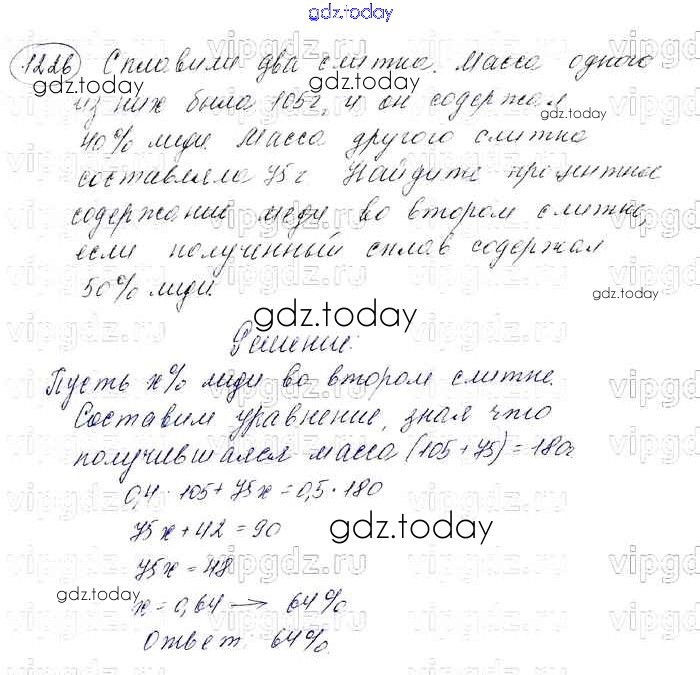 gdz.today
1226 Сплавили два слитка. Масса одного
gdz.today
из них была 105г, и он содержал
gdz.today
40% меди Масса другого слитка
составляла 75г Найдите процентное
содержание меди во втором слитке,
если полученный сплав содержал
50% меди.
gdz.today
gdz.today
Решение:
Пусть x% меди во втором слитке.
Составим уравнение, зная что
получившаяся масса (105+75)=180г
0,4·105+75x=0,5·180
75x+42=90
gdz.today
75x=48
gdz.today
x=0,64→ 64%
Ответ: 64%.